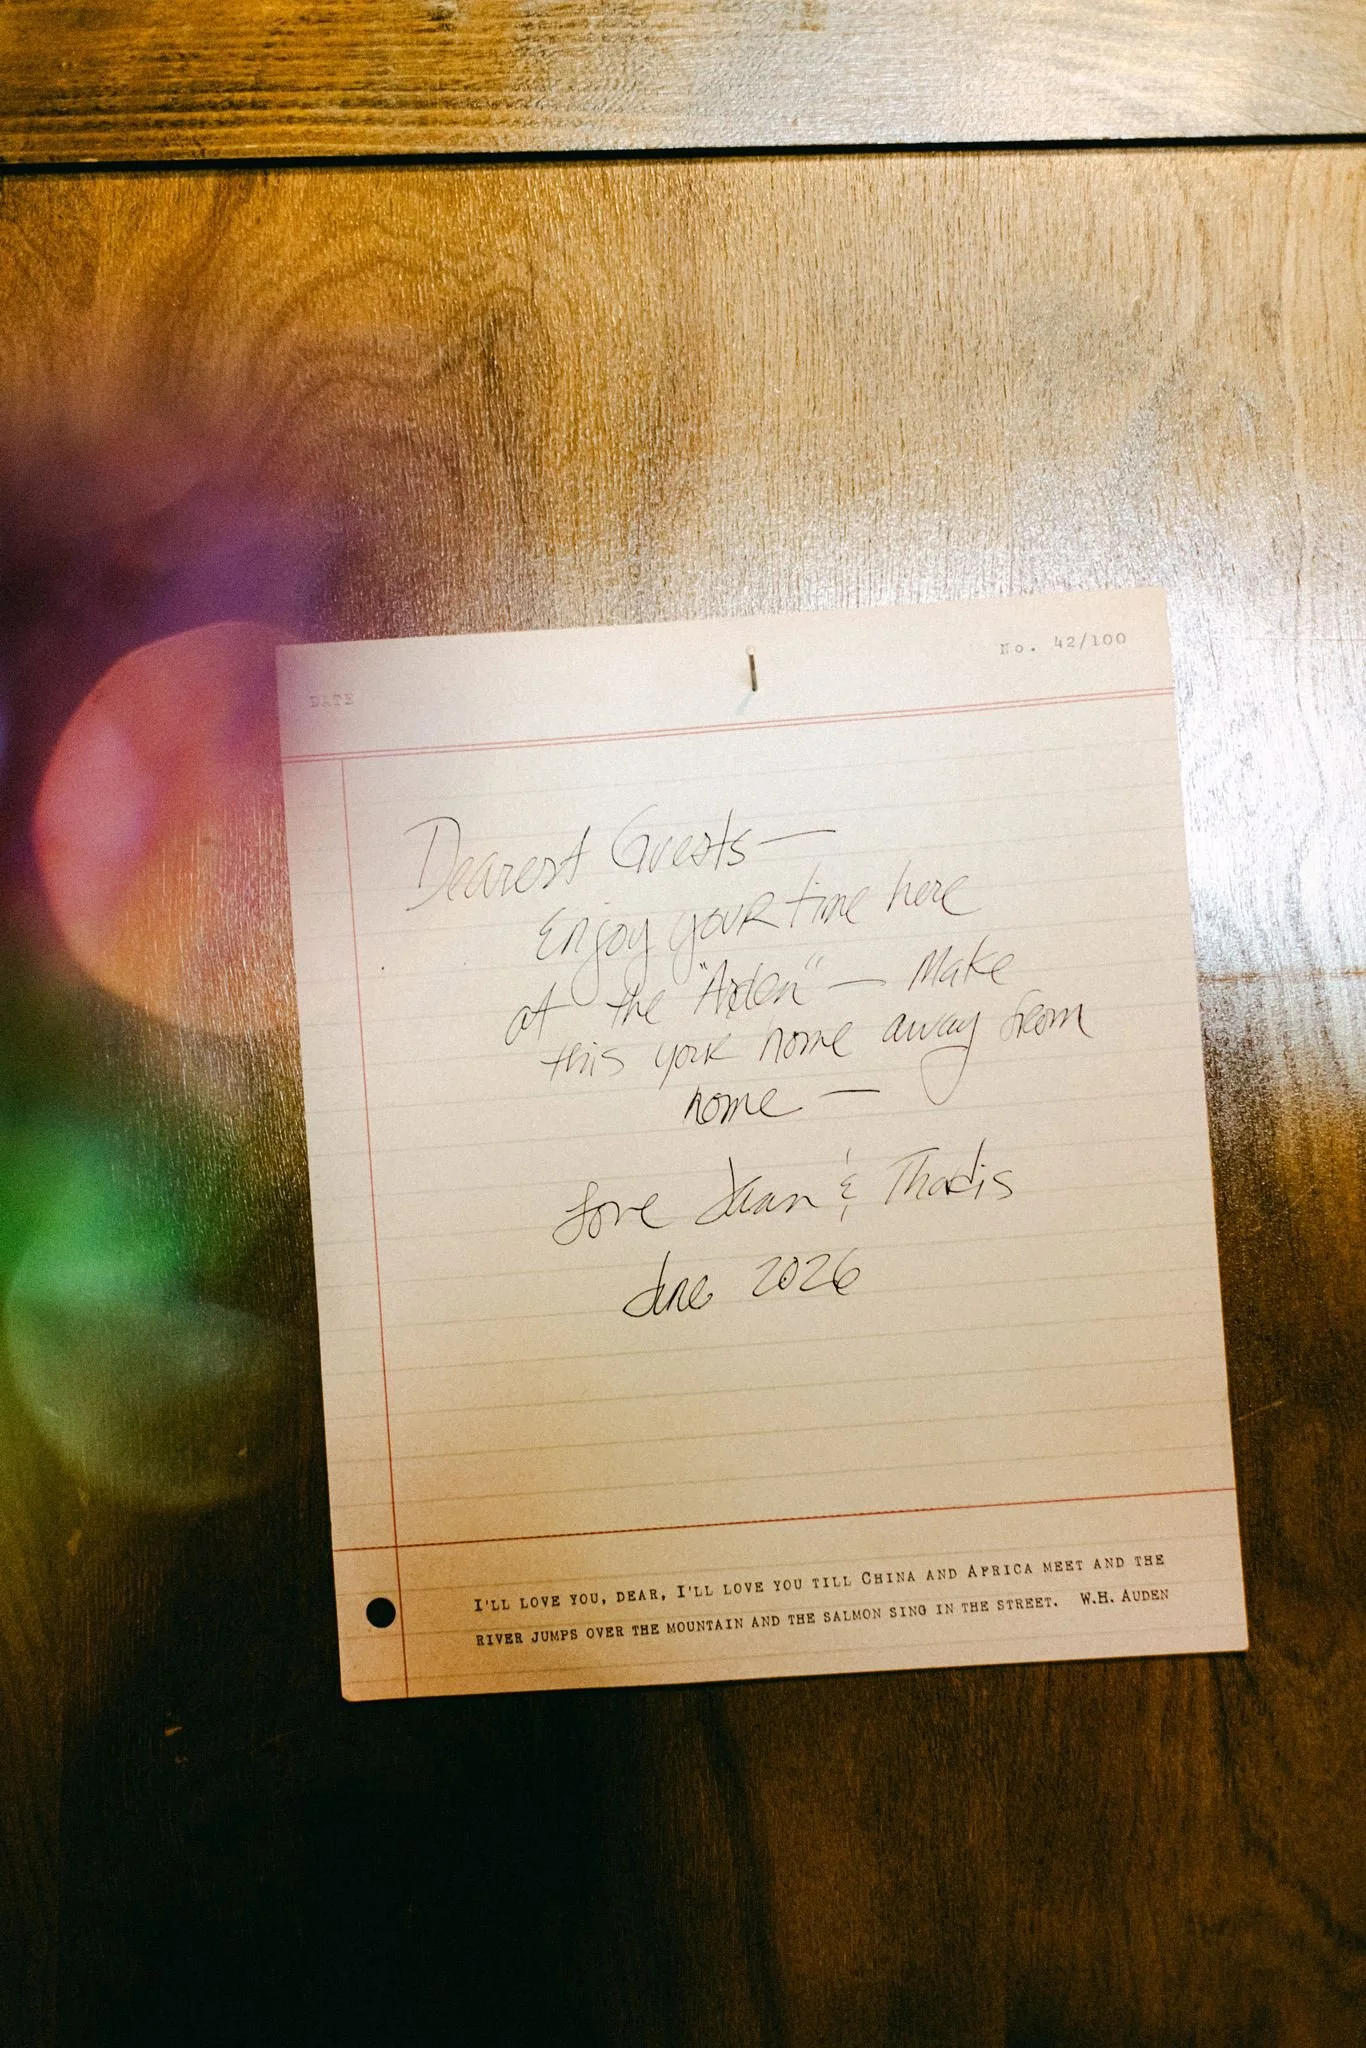 DATE
No. 42/100
Dearest Guests—
Enjoy your time here
at the "Arden" — Make
this your home away from
home —
Love Jaan & Thadis
June 2026
I'LL LOVE YOU, DEAR, I'LL LOVE YOU TILL CHINA AND AFRICA MEET AND THE
RIVER JUMPS OVER THE MOUNTAIN AND THE SALMON SING IN THE STREET. W.H. AUDEN